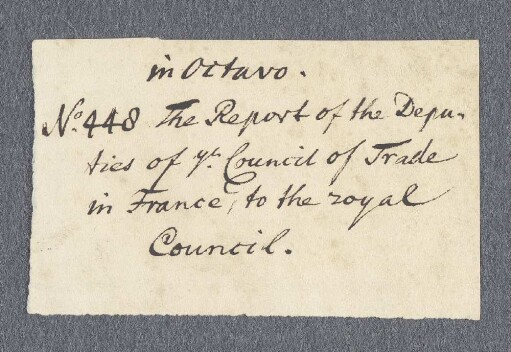 in Octavo.
No. 448 The Report of the Depu-
ties of yt. Council of Trade
in France, to the royal
Council.